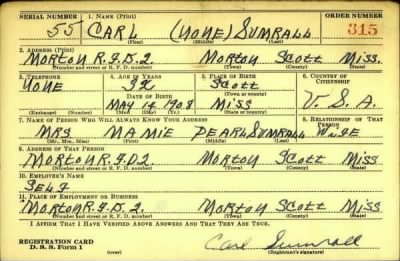 SERIAL NUMBER 1. NAME (Print) ORDER NUMBER
55 CARL (NONE) SUMRALL 315
(First) (Middle) (Last)
2. ADDRESS (Print)
MORTON R.F.D.2 MORTON SCOTT MISS.
(Number and street or R. F. D. number) (Town) (County) (State)
3. TELEPHONE 4. AGE IN YEARS 5. PLACE OF BIRTH 6. COUNTRY OF CITIZENSHIP
NONE 32 SCOTT
(Town or county)
DATE OF BIRTH
MAY 14 1908 MISS U.S.A.
(Exchange) (Number) (Mo.) (Day) (Yr.) (State or country)
7. NAME OF PERSON WHO WILL ALWAYS KNOW YOUR ADDRESS 8. RELATIONSHIP OF THAT PERSON
MRS MAMIE PEARL SUMRALL WIFE
(Mr., Mrs., Miss) (First) (Middle) (Last)
9. ADDRESS OF THAT PERSON
MORTON R.F.D.2 MORTON SCOTT MISS.
(Number and street or R. F. D. number) (Town) (County) (State)
10. EMPLOYER'S NAME
SELF
11. PLACE OF EMPLOYMENT OR BUSINESS
MORTON R.F.D.2. MORTON SCOTT MISS
(Number and street or R. F. D. number) (Town) (County) (State)
I AFFIRM THAT I HAVE VERIFIED ABOVE ANSWERS AND THAT THEY ARE TRUE.
REGISTRATION CARD
D. S. S. Form 1 Carl Sumrall
(Registrant's signature)